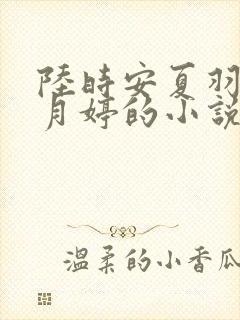 陸時安夏羽
月婷的小說
温柔的小香瓜